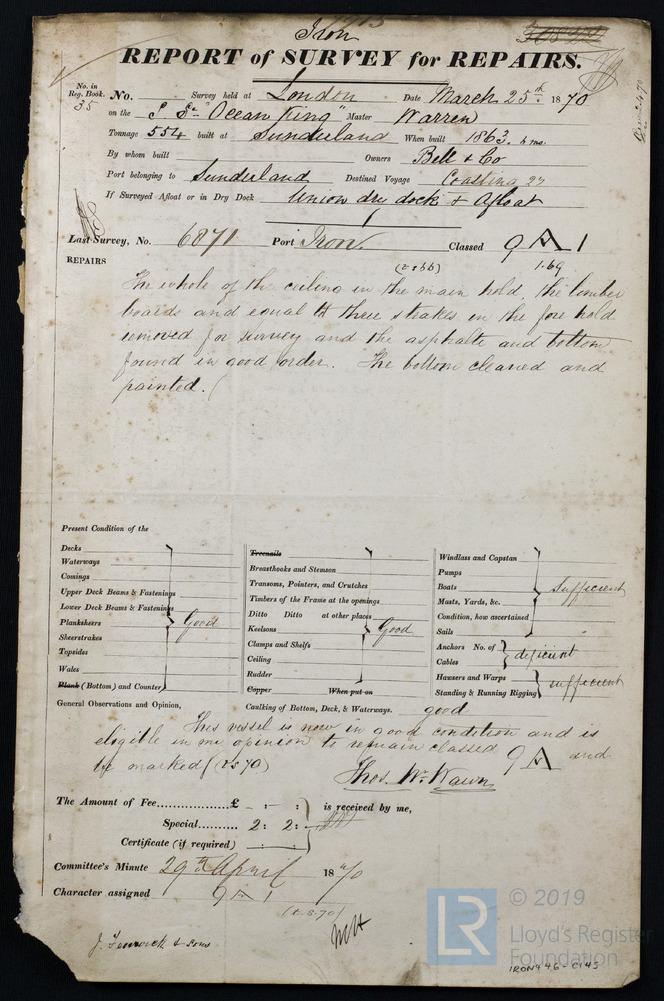 Iron
REPORT of SURVEY for REPAIRS.
No. in Reg. Book. 35
No. Survey held at London Date March 25th 1870
on the S. Sr "Ocean King" Master Warren
Tonnage 554 built at Sunderland When built 1863.
By whom built Owners Bell & Co
Port belonging to Sunderland Destined Voyage Coasting
If Surveyed Afloat or in Dry Dock Union dry dock & Afloat
Last Survey, No. 6871 Port Iron. Classed 9 A 1
1.69
REPAIRS
The whole of the ceiling in the main hold, the limber
boards and equal to three strakes in the fore hold
removed for survey and the asphalte and bottom
found in good order. The bottom cleaned and
painted.
Present Condition of the
Decks
Waterways
Comings
Upper Deck Beams & Fastenings
Lower Deck Beams & Fastenings
Planksheers
Sheerstrakes
Topsides
Wales
Plank (Bottom) and Counter
Good
Treenails
Breasthooks and Stemson
Transoms, Pointers, and Crutches
Timbers of the Frame at the openings
Ditto Ditto at other places
Keelsons
Clamps and Shelfs
Ceiling
Rudder
Copper When put on
Good
Windlass and Capstan
Pumps
Boats
Masts, Yards, &c.
Condition, how ascertained
Sails
Sufficient
Anchors No. of
Cables
deficient
Hawsers and Warps
Standing & Running Rigging
sufficient
General Observations and Opinion, Caulking of Bottom, Deck, & Waterways. good
This vessel is now in good condition and is
eligible in my opinion to remain classed 9 A and
be marked
Thos. Wm. Wawn
The Amount of Fee...............£ is received by me,
Special.......... 2: 2:
Certificate (if required)
Committee's Minute 29th April 1870
Character assigned 9 A 1
J. Fenwick & Sons
© 2019
LR
Lloyd's Register
Foundation
IRON446-0145